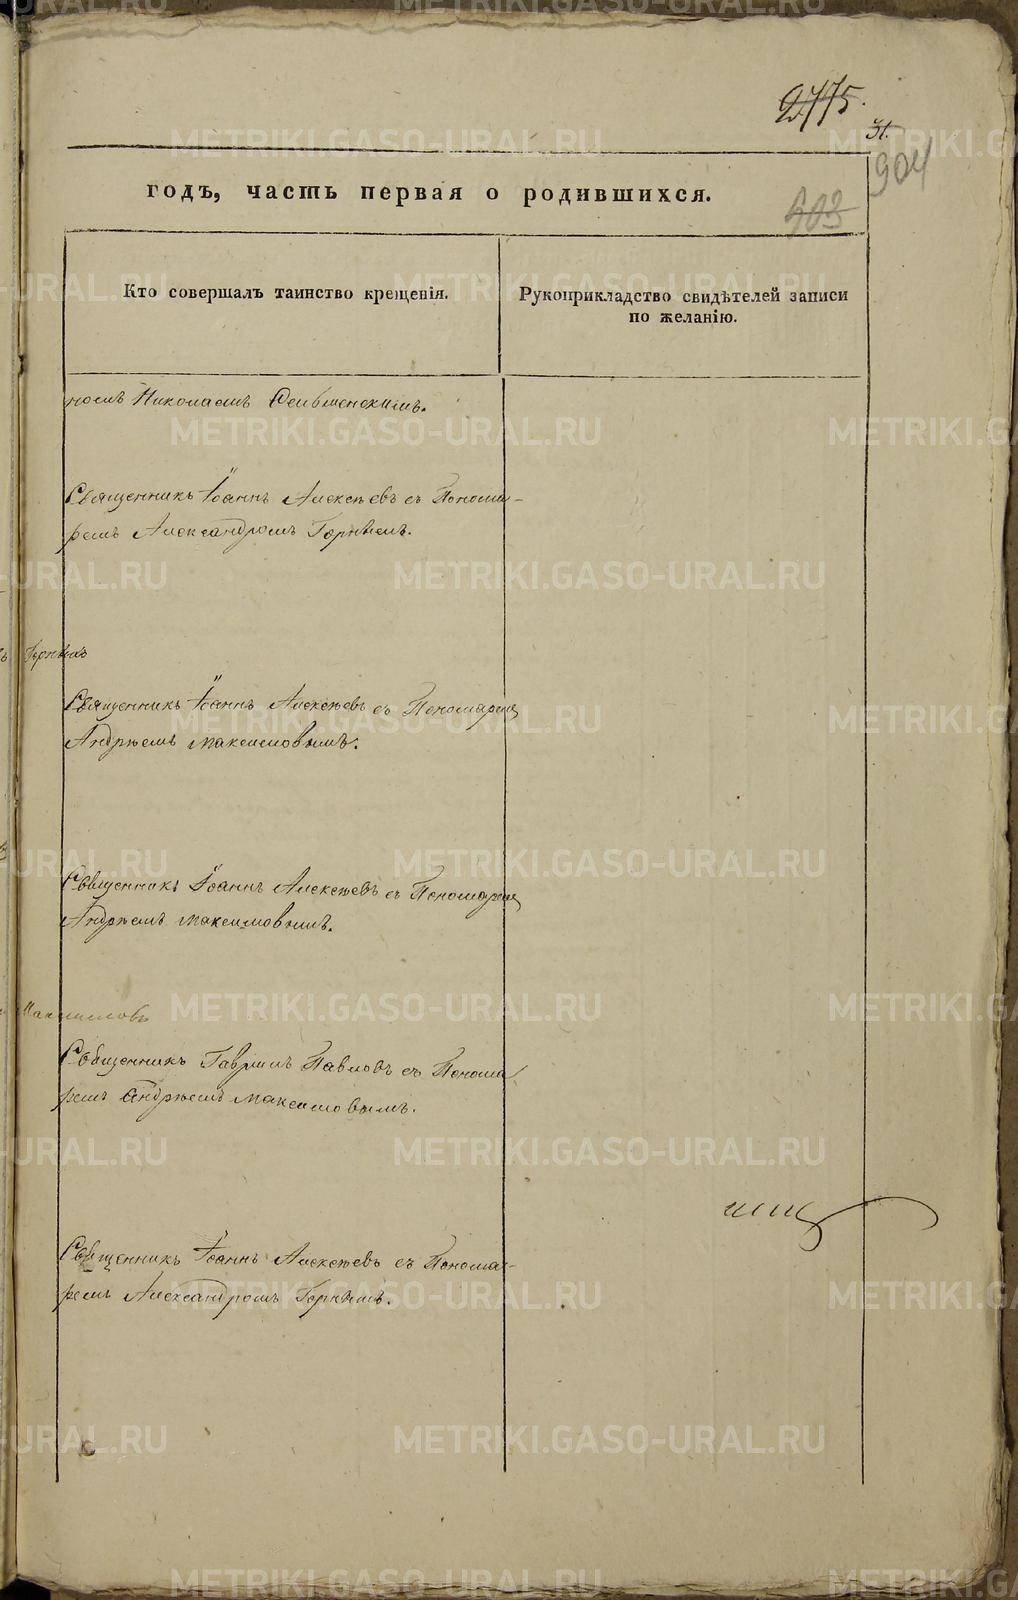 2775.
31.
904
903
годъ, часть первая о родившихся.
Кто совершалъ таинство крещенія.
Рукоприкладство свидѣтелей записи
по желанію.
номъ Николаемъ
Священникъ Іоаннъ Алексѣевъ съ Понома-
ремъ Александромъ Горнымъ.
Священникъ Іоаннъ Алексѣевъ съ Пономаремъ
Андрѣемъ Максимовымъ.
Священникъ Іоаннъ Алексѣевъ съ Пономаремъ
Андрѣемъ Максимовымъ.
Максимовъ
Священникъ Гавріилъ Павловъ съ Понома
ремъ Андрѣемъ Максимовымъ.
Священникъ Іоаннъ Алексѣевъ съ Понома-
ремъ Александромъ Горнымъ.
METRIKI.GASO-URAL.RU